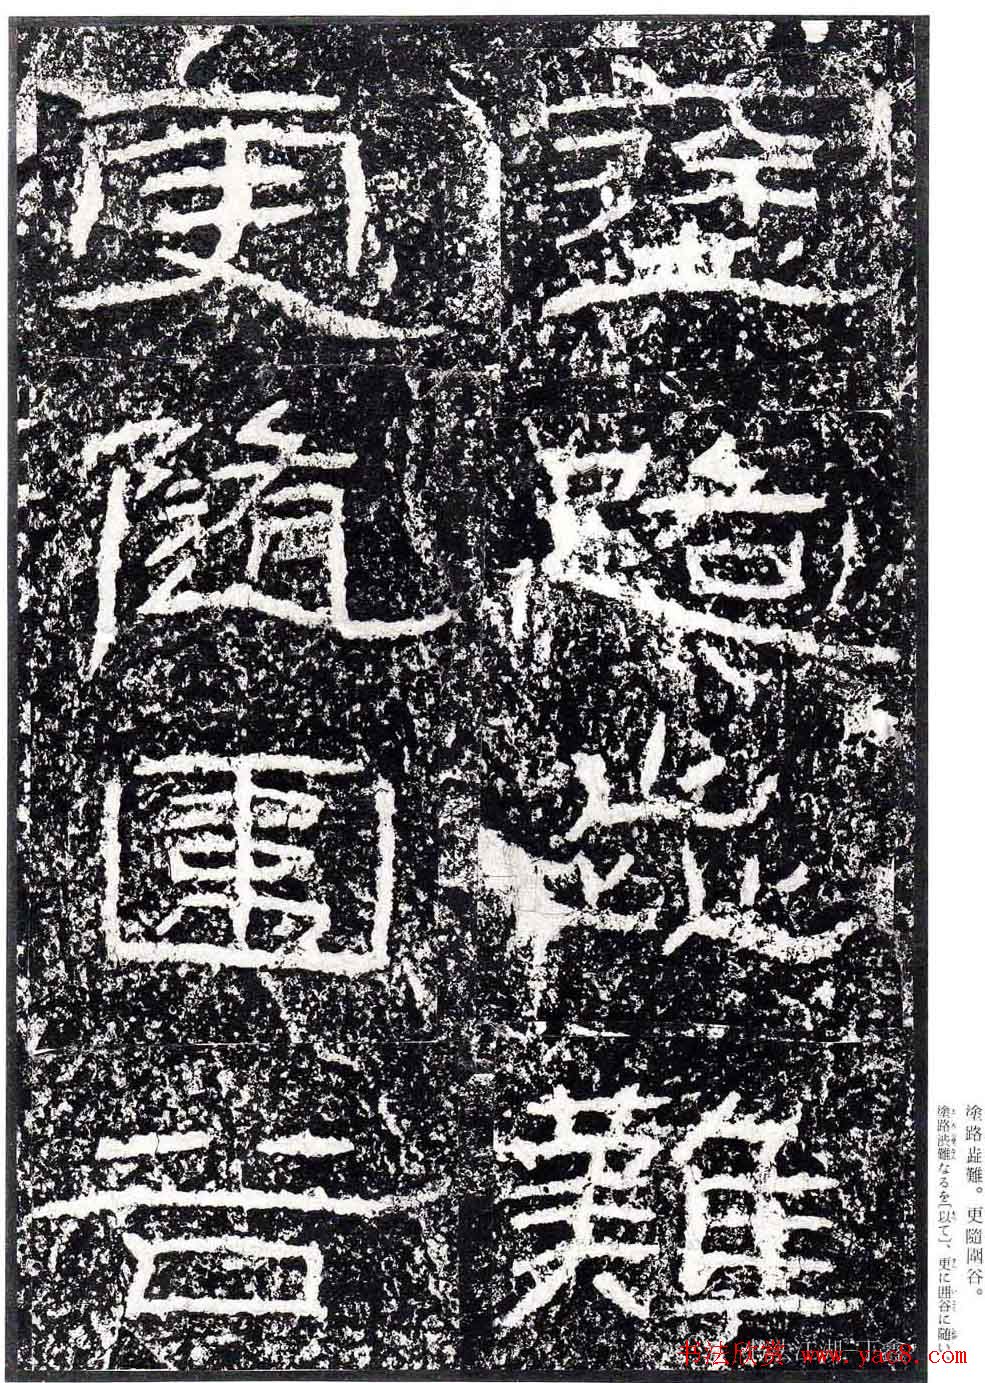 塗路歮難
更隨圍谷
塗路歮難。更隨圍谷。
塗路渋難なるを〔以て〕、更に囲谷に随い
书法欣赏 www.yac8.com